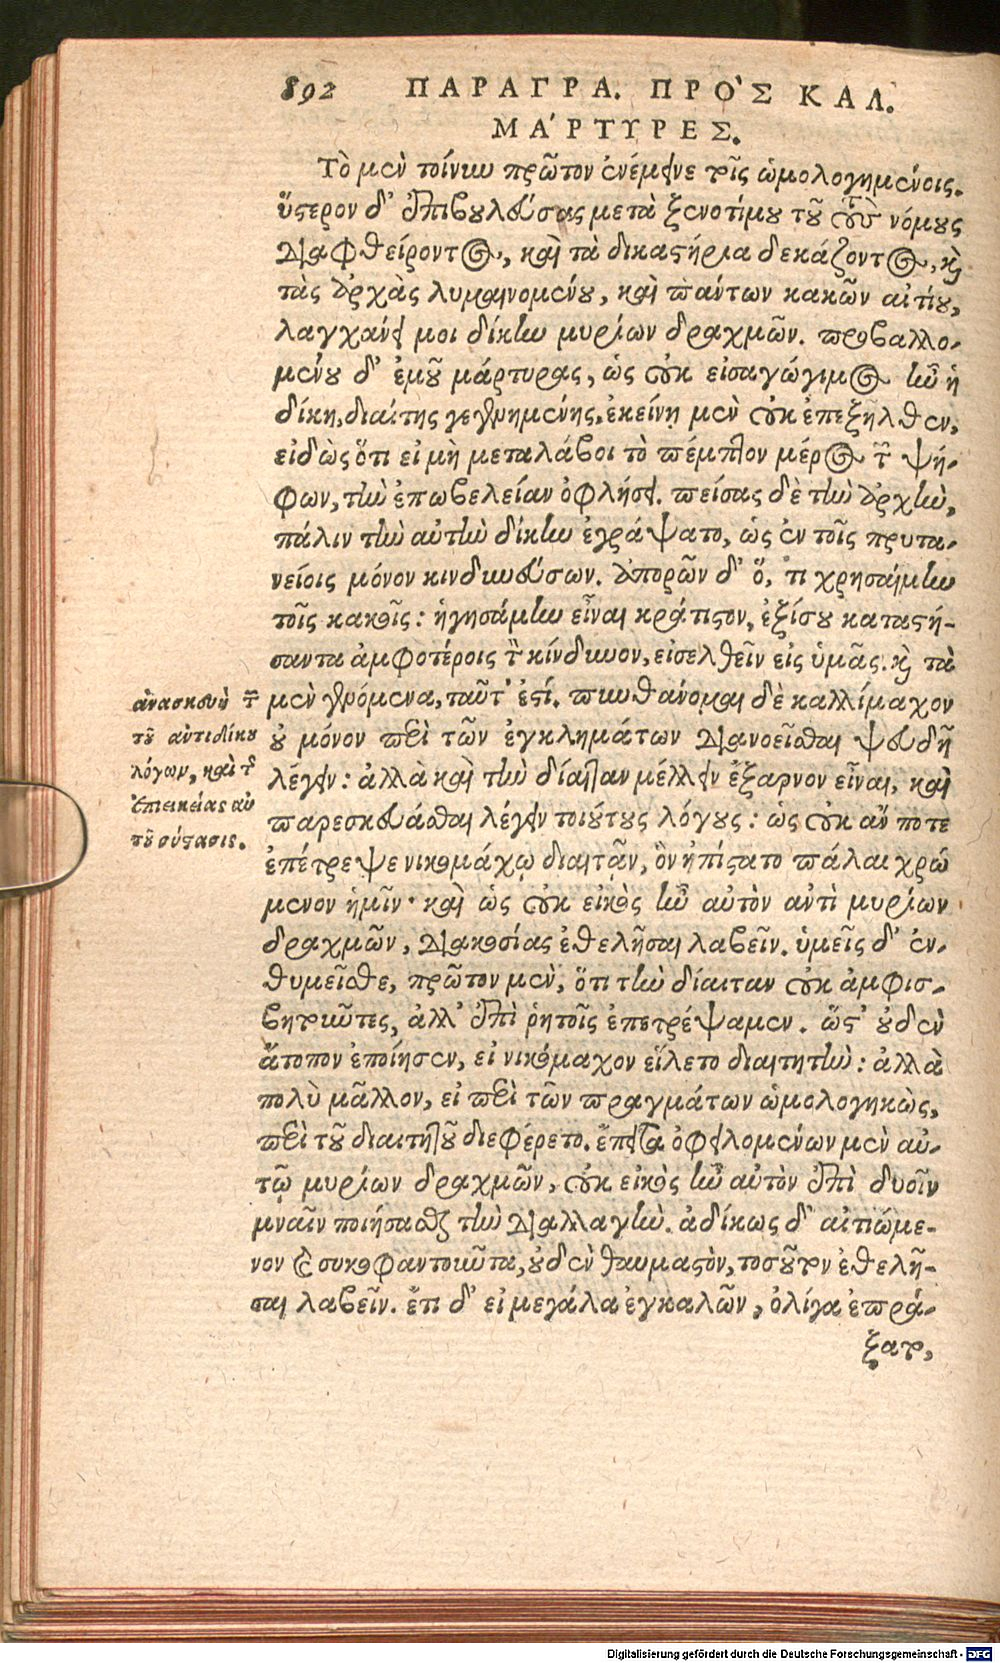 892 ΠΑΡΑΓΡΑ. ΠΡΟ᾽Σ ΚΑΛ.
ΜΑ᾽ΡΤΥΡΕΣ.
Τὸ μὲν τοίνυν πρῶτον ἐνέμεινε τοῖς ὡμολογημένοις.
ὕστερον δ᾽ ἐπιβουλεύσας μετὰ ξενοτίμου τοῦ τοὺς νόμους
διαφθείροντος, καὶ τὰ δικαστήρια δεκάζοντος, καὶ
τὰς ἀρχὰς λυμαινομένου, καὶ πάντων κακῶν αἰτίου,
λαγχάνει μοι δίκην μυρίων δραχμῶν. προβαλλο-
μένου δ᾽ ἐμοῦ μάρτυρας, ὡς οὐκ εἰσαγώγιμος ἦν ἡ
δίκη, διαίτης γεγενημένης, ἐκείνῃ μὲν οὐκ ἐπεξῆλθεν,
εἰδὼς ὅτι εἰ μὴ μεταλάβοι τὸ πέμπτον μέρος τῶν ψή-
φων, τὴν ἐπωβελείαν ὀφλήσει. πείσας δὲ τὴν ἀρχὴν,
πάλιν τὴν αὐτὴν δίκην ἐγράψατο, ὡς ἐν τοῖς πρυτα-
νείοις μόνον κινδυνεύσων. ἀπορῶν δ᾽ ὅ, τι χρησαίμην
τοῖς κακοῖς: ἡγησάμην εἶναι κράτιστον, ἐξίσου καταστή-
σαντα ἀμφοτέροις τὸν κίνδυνον, εἰσελθεῖν εἰς ὑμᾶς. καὶ τὰ
μὲν γενόμενα, ταῦτ᾽ ἐστί. πυνθάνομαι δὲ καλλίμαχον
οὐ μόνον περὶ τῶν ἐγκλημάτων διανοεῖσθαι ψευδῆ
λέγειν: ἀλλὰ καὶ τὴν δίαιταν μέλλειν ἔξαρνον εἶναι, καὶ
παρεσκευάσθαι λέγειν τοιούτους λόγους: ὡς οὐκ ἄν ποτε
ἐπέτρεψε νικομάχῳ διαιτᾶν, ὃν ἠπίστατο πάλαι χρώ
μενον ἡμῖν· καὶ ὡς οὐκ εἰκὸς ἦν αὐτὸν ἀντὶ μυρίων
δραχμῶν, διακοσίας ἐθελῆσαι λαβεῖν. ὑμεῖς δ᾽ ἐν-
θυμεῖσθε, πρῶτον μὲν, ὅτι τὴν δίαιταν οὐκ ἀμφισ-
βητοῦντες, ἀλλ᾽ ἐπὶ ῥητοῖς ἐπετρέψαμεν. ὥστ᾽ οὐδὲν
ἄτοπον ἐποίησεν, εἰ νικόμαχον εἵλετο διαιτητὴν: ἀλλὰ
πολὺ μᾶλλον, εἰ περὶ τῶν πραγμάτων ὡμολογηκὼς,
περὶ τοῦ διαιτητοῦ διεφέρετο. ἔπειτα ὀφειλομένων μὲν αὐ-
τῷ μυρίων δραχμῶν, οὐκ εἰκὸς ἦν αὐτὸν ἐπὶ δυοῖν
μναῖν ποιήσασθαι τὴν διαλλαγὴν. ἀδίκως δ᾽ αἰτιώμε-
νον καὶ συκοφαντοῦντα, οὐδὲν θαυμαστὸν, τοσοῦτον ἐθελῆ-
σαι λαβεῖν. ἔτι δ᾽ εἰ μεγάλα ἐγκαλῶν, ὀλίγα ἐπρά-
ξατο,
ἀνασκευὴ τῶν
τοῦ ἀντιδίκου
λόγων, καὶ τῆς
ἐπιεικείας αὐ
τοῦ σύστασις.
Digitalisierung gefördert durch die Deutsche Forschungsgemeinschaft - DFG